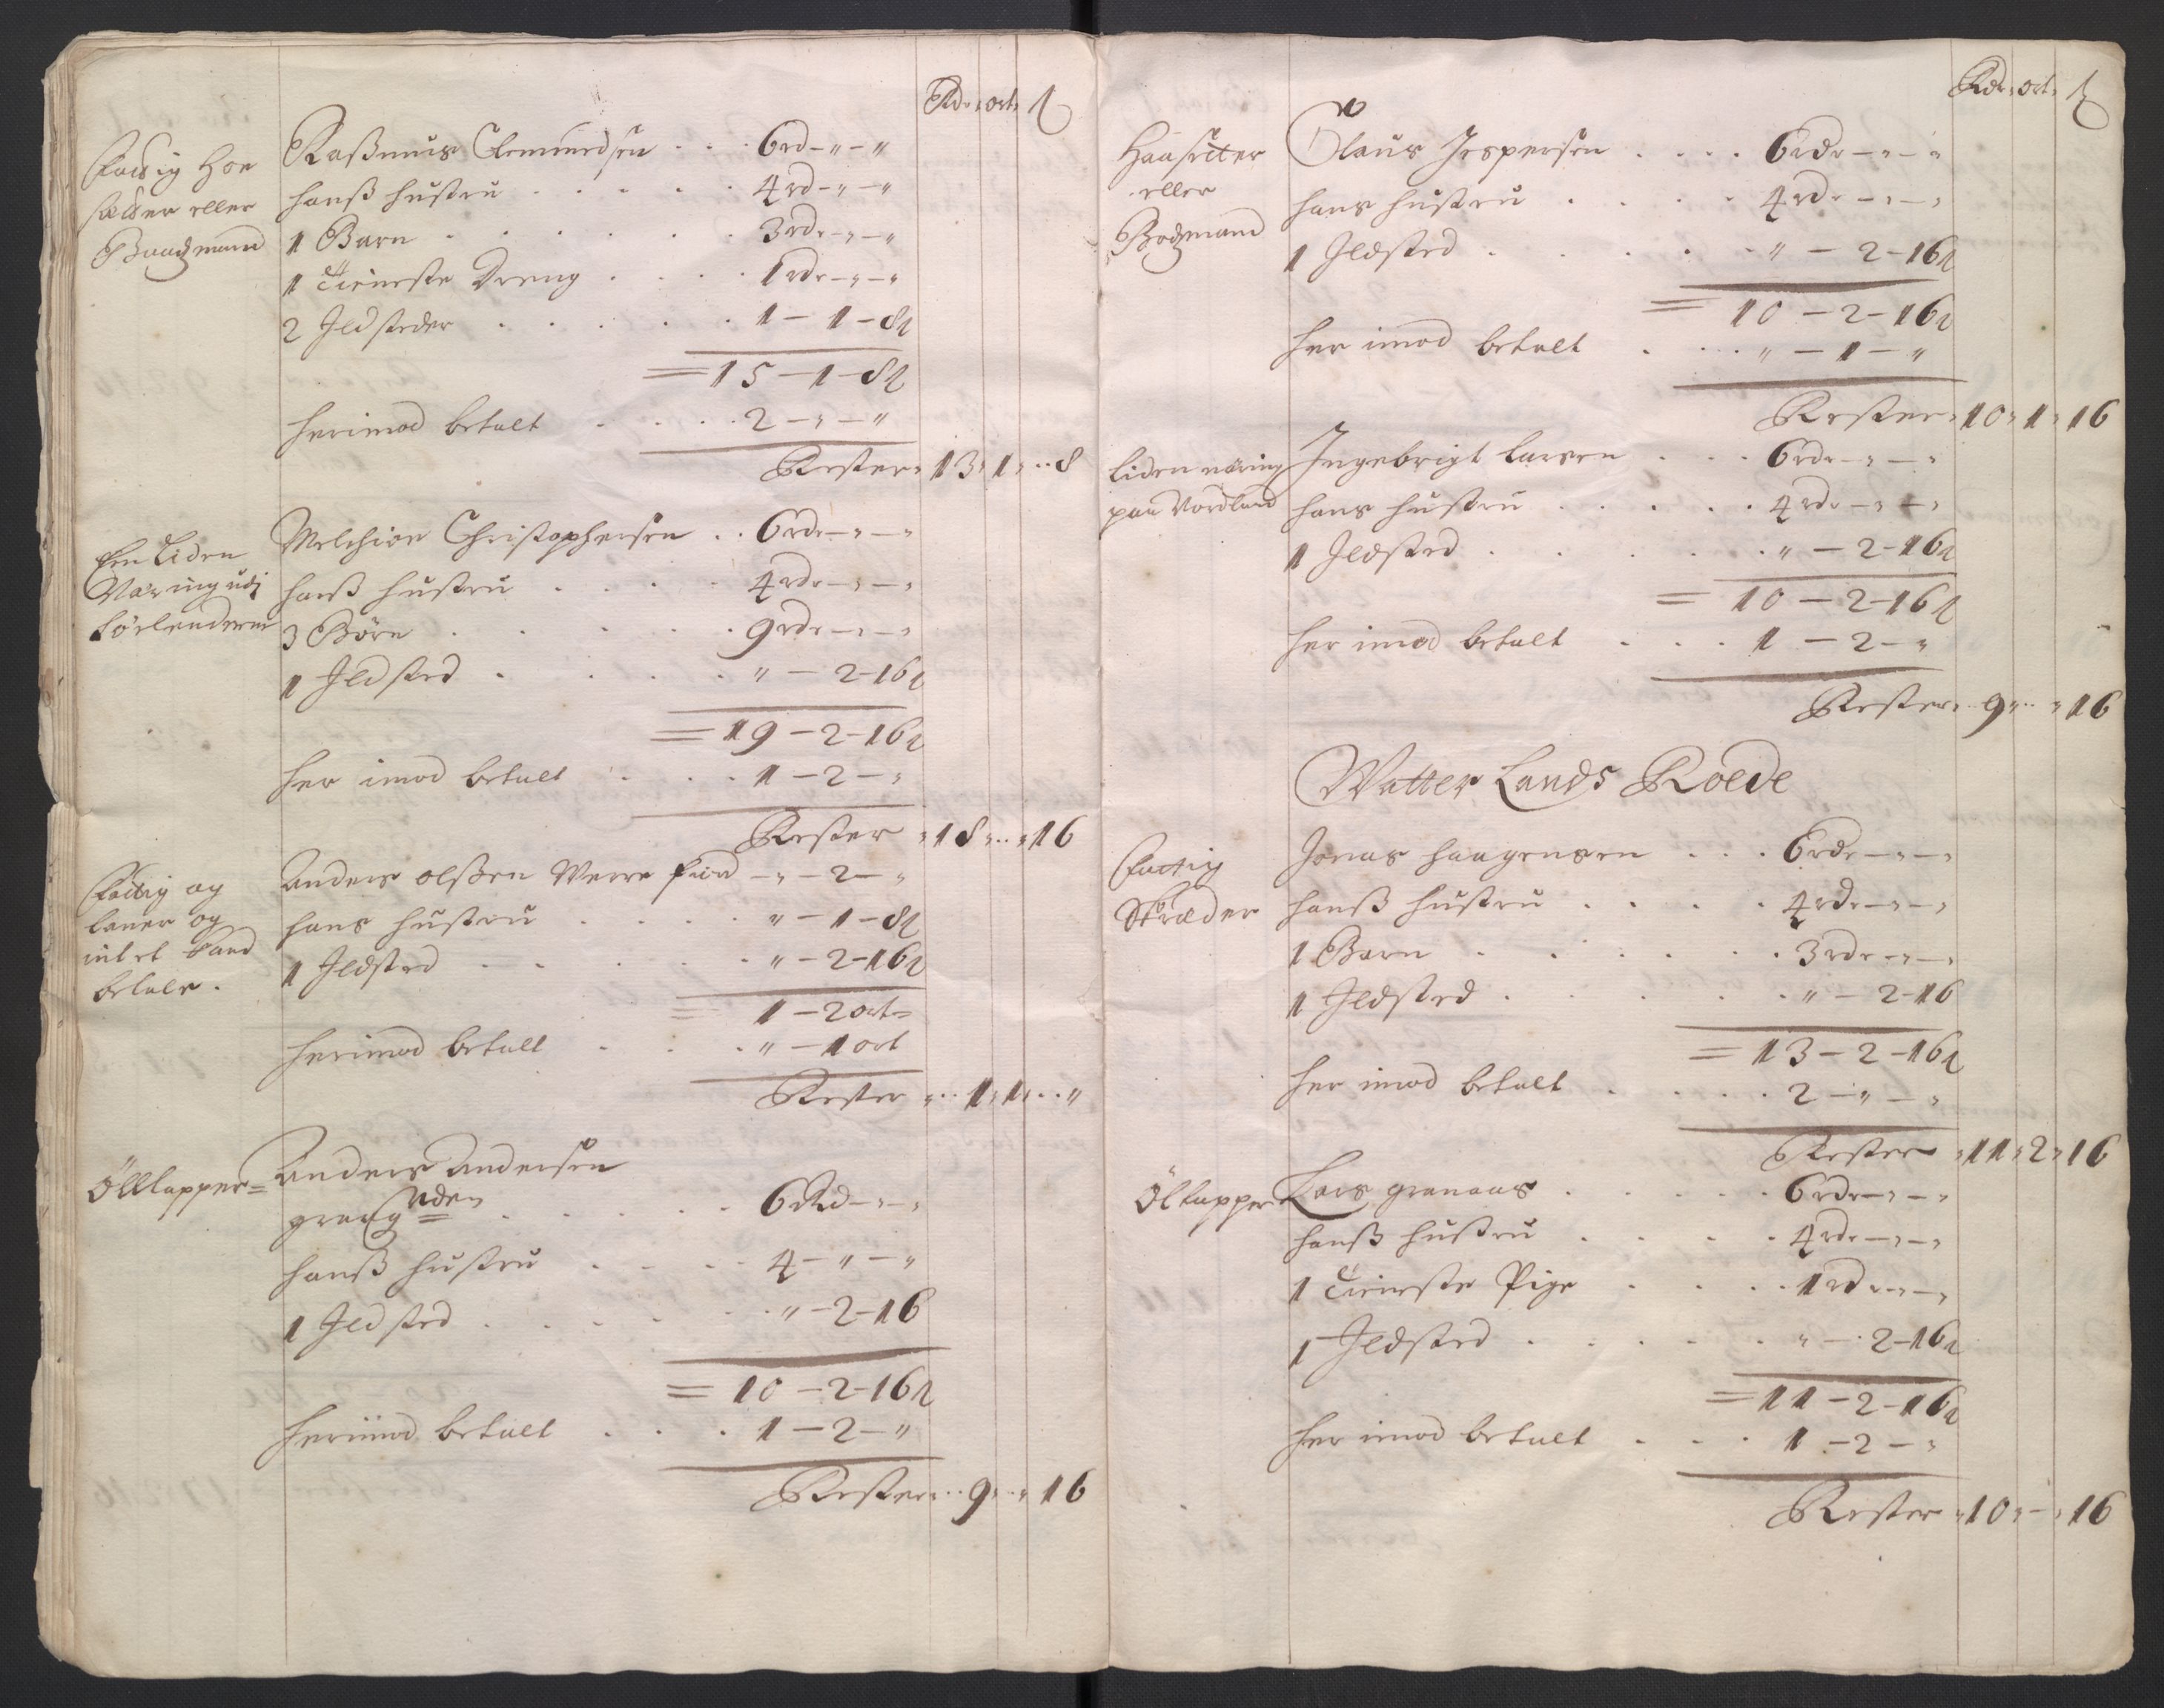 Rdr ort ß
Fattig Hoe
sætter eller
Baadzmand
Raßmus Clemmedsen . . . 6rd – " – "
hanß hustru . . . . . 4rd – " – "
1 Barn . . . . . . 3rdr – " – "
1 Tieneste Dreng . . . . 1rdr – " – "
2 Jldsteder . . . . . 1 – 1 – 8ß
= 15 – 1 – 8ß
herimod betalt . . . . 2 – " – "
Rester 13 " 1 " .. 8
Een Liden
Næring udj
Førlenderne
Melchior Christophersen . . 6rdr – " – "
hanß hustru . . . . 4rdr – " – "
3 Børn . . . . . . 9rdr – " – "
1 Jldsted . . . . . " – 2 – 16ß
= 19 – 2 – 16ß
her imod betalt . . . . 1 – 2 – "
Rester " 18 " .. " 16
Fattig og
laner og
intet kand
betale .
Anders olßen Werre fiord – " – 2 – "
hans hustru . . . . " – 1 – 8ß
1 Jldsted . . . . . . " – 2 – 16ß
= 1 – 2 ort =
herimod betalt . . . " – 1 ort
Rester " .. 1 " 1 " .. "
Ölltapper =
Anders Andersen
6 Rd – " – "
hanß hustru . . . . 4 – " – "
1 Jldsted . . . . . " – 2 – 16
= 10 – 2 – 16ß
herimod betalt . . . 1 – 2 – "
Rester " .. 9 " .. " 16
Rdr ort ß
Haasetter
eller
Bodzmand
Olaus Jespersen . . . . 6rdr – " – "
hans hustru . . . . 4rdr – " – "
1 Jldsted . . . . . " – 2 – 16ß
= 10 – 2 – 16ß
her imod betalt . . . . " – 1 – "
Rester " 10 " 1 " 16
Liden næring
paa Nordland
Ingebrigt Larsen . . . 6rdr – " – "
hans hustru . . . . . 4rdr – " – "
1 Jldsted . . . . . " – 2 – 16ß
= 10 – 2 – 16ß
her imod betalt . . . 1 – 2 – "
Rester " .. 9 " .. " 16
Watter Lands Roede
Fattig
Skræder
Jonas haagensen . . . 6rdr – " – "
hanß hustru . . . . 4rdr – " – "
1 Barn . . . . . . 3rdr – " – "
1 Jldsted . . . . . " – 2 – 16
= 13 – 2 – 16ß
her imod betalt . . . . . 2 – " – "
Rester " 11 " 2 " 16
Öltapper
Lars granaas . . . . . 6rdr – " – "
hanß hustru . . . . 4rdr – " – "
1 Tieneste Pige . . . . 1rd – " – "
1 Jldsted . . . . . " – 2 – 16ß
= 11 – 2 – 16ß
her imod betalt . . . 1 – 2 – "
Rester " 10 " – " 16